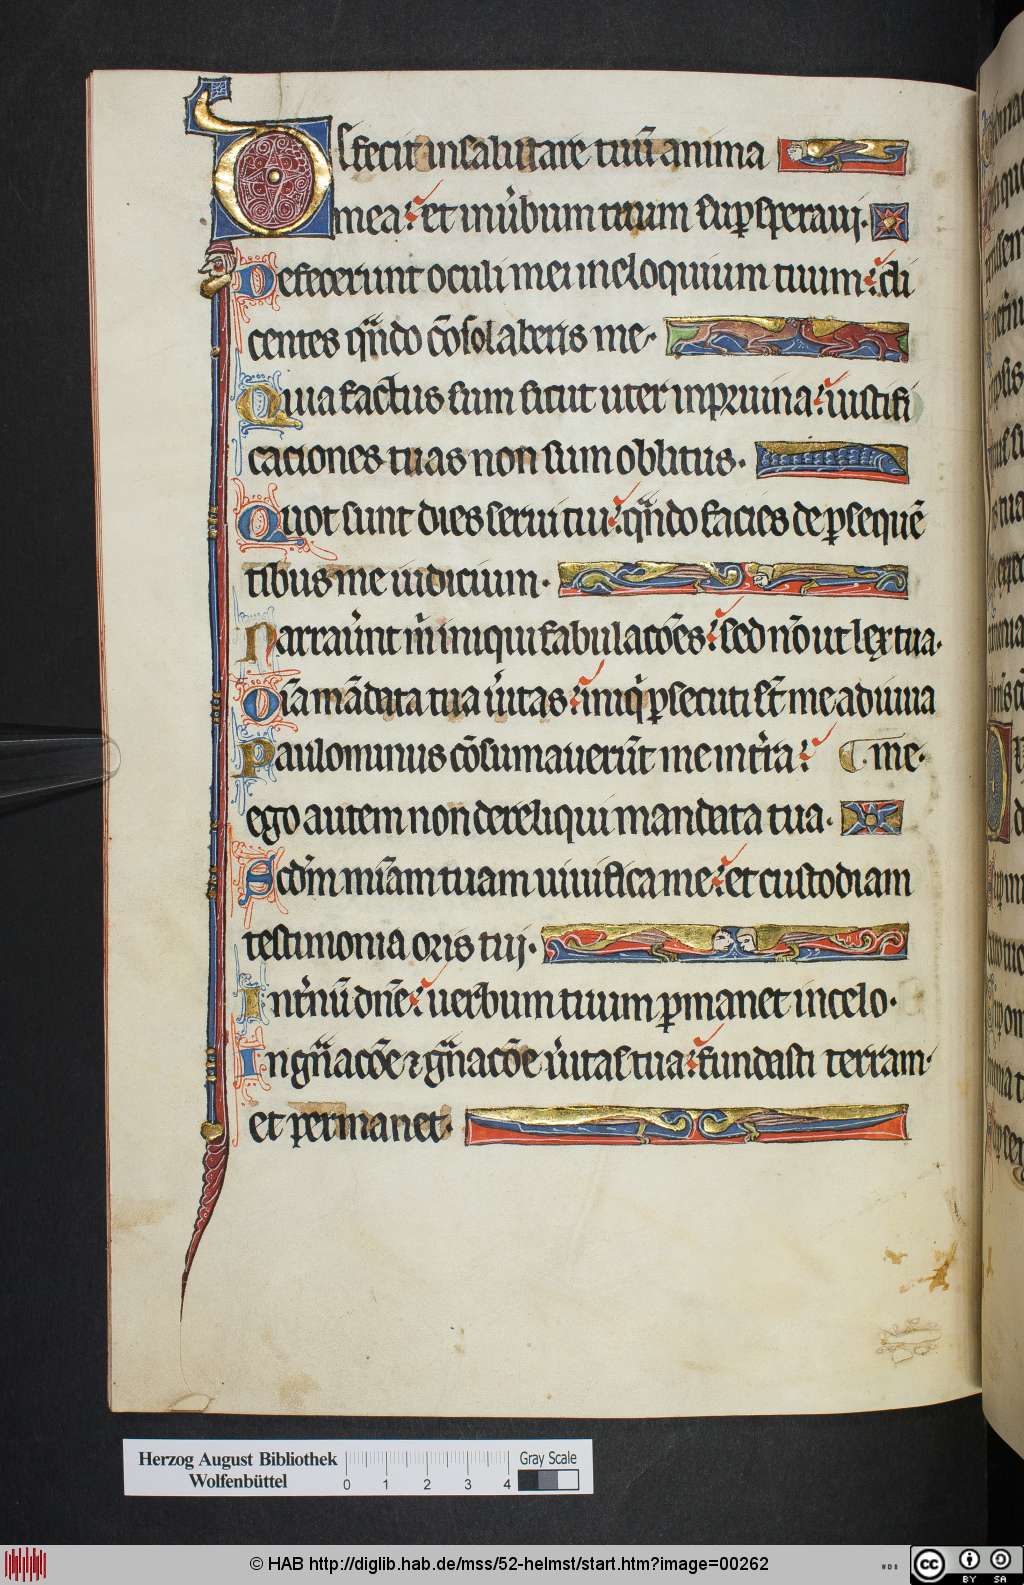 Defecit in salutare tuū anima
mea : et in ūbum tuum suꝑsperaui .
Defecerunt oculi mei in eloquium tuum : di
centes qn̄do cōsolaberis me .
Quia factus sum sicut uter in pruina : iustifi
caciones tuas non sum oblitus .
Quot sunt dies serui tui : qn̄do facies de ꝑsequē
tibus me iudicium .
Narraūnt m̄ iniqui fabulacōes : sed nō ut lex tua .
Oīa mādata tua ūitas : iniq̄ ꝑsecuti st̄ me adiuua
Paulominus cōsumauerūt me in tr̄a : me .
ego autem non dereliqui mandata tua .
Scd̄m mīam tuam uiuifica me : et custodiam
testimonia oris tui .
In et̄nū dn̄e : uerbum tuum ꝑmanet in celo .
In gn̄acōe ⁊ gn̄acōe ūitas tua : fundasti terram .
et permanet .
Herzog August Bibliothek
Wolfenbüttel
0 1 2 3 4
Gray Scale
© HAB http://diglib.hab.de/mss/52-helmst/start.htm?image=00262
WDB
cc BY SA